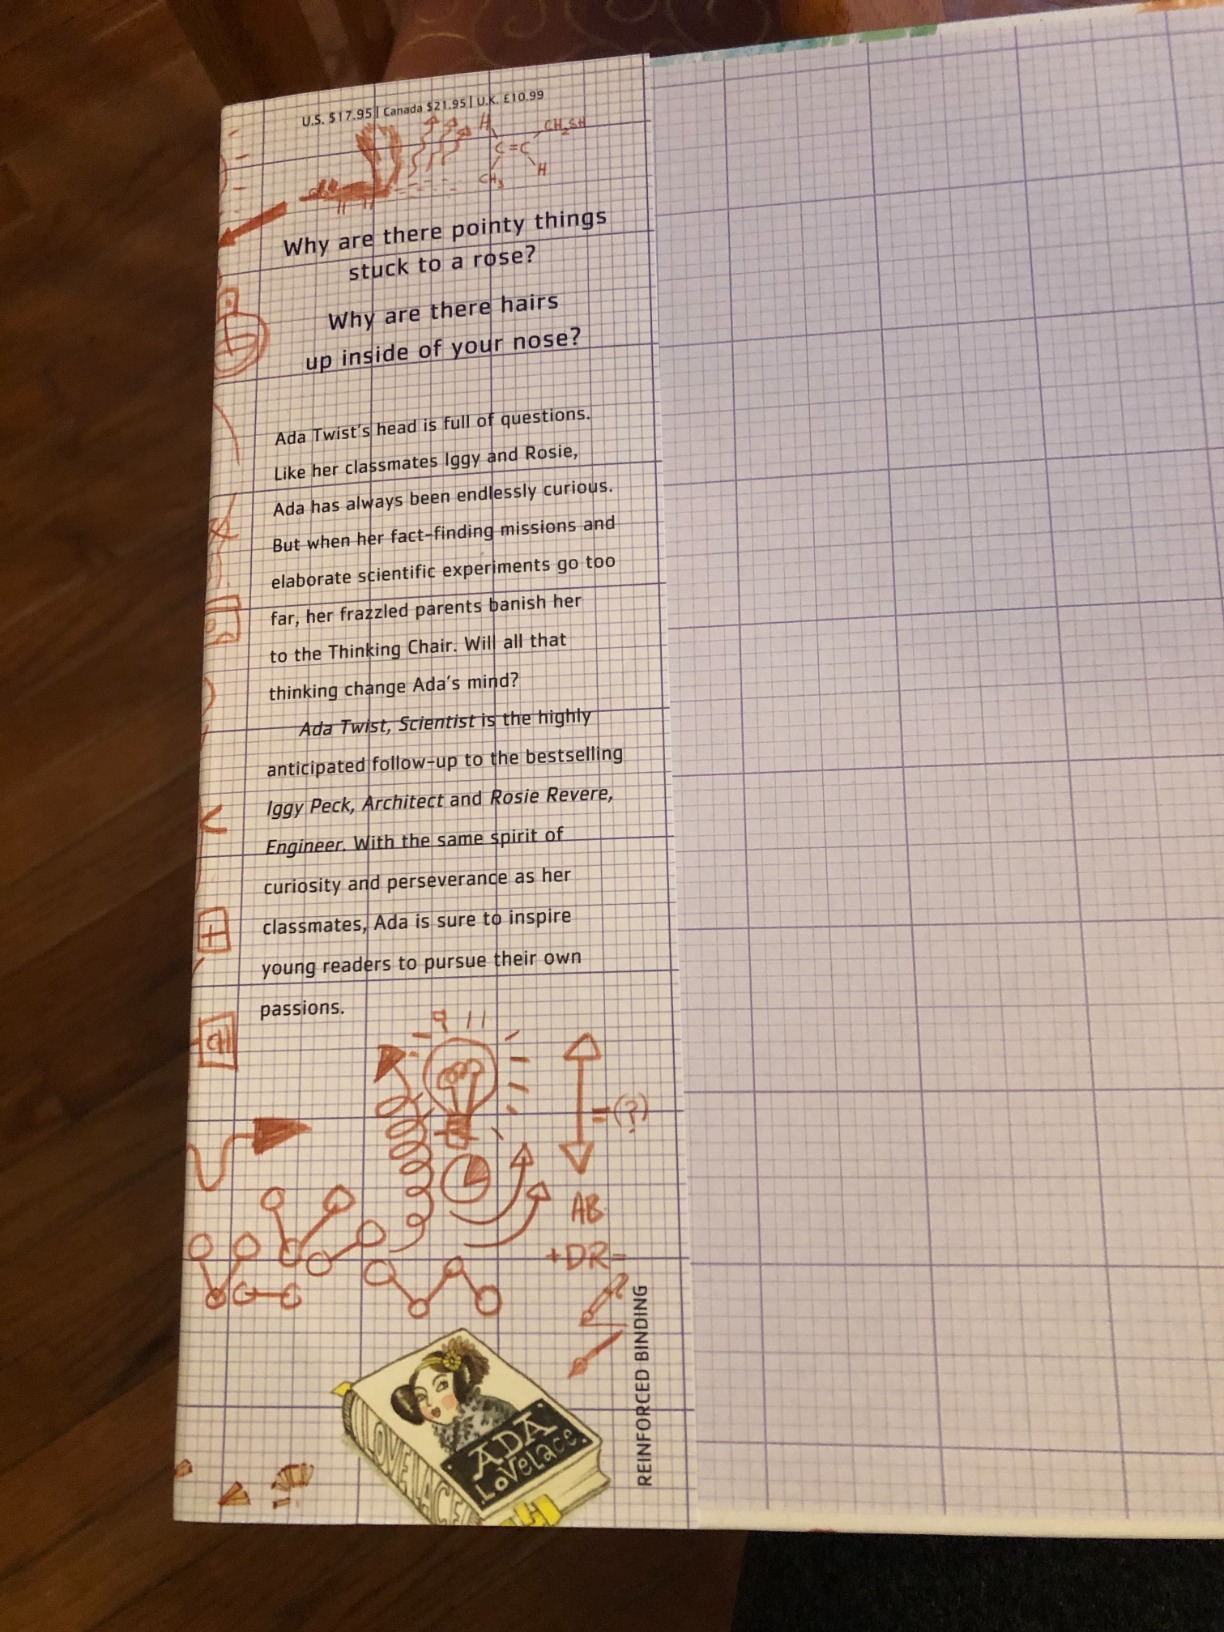 U.S. $17.95 | Canada $21.95 | U.K. £10.99
H
CH₂SH
C=C
CH₃
H
Why are there pointy things
stuck to a rose?
Why are there hairs
up inside of your nose?
Ada Twist's head is full of questions.
Like her classmates Iggy and Rosie,
Ada has always been endlessly curious.
But when her fact-finding missions and
elaborate scientific experiments go too
far, her frazzled parents banish her
to the Thinking Chair. Will all that
thinking change Ada's mind?
Ada Twist, Scientist is the highly
anticipated follow-up to the bestselling
Iggy Peck, Architect and Rosie Revere,
Engineer. With the same spirit of
curiosity and perseverance as her
classmates, Ada is sure to inspire
young readers to pursue their own
passions.
=(?)
AB
+DR=
REINFORCED BINDING
ADA
LOVELACE
LOVELACE